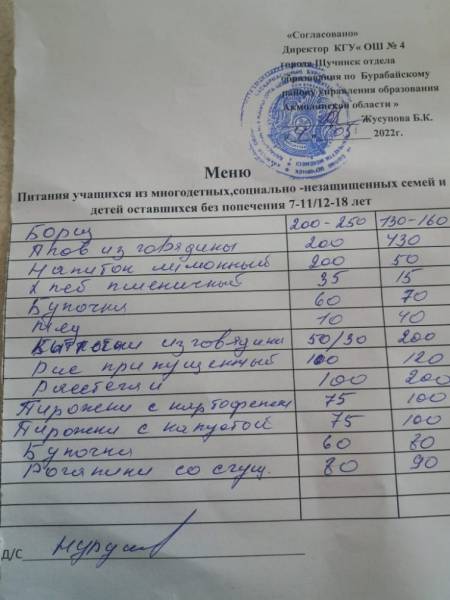 «Согласовано»
Директор КГУ« ОШ № 4
города Щучинск отдела
образования по Бурабайскому
району управления образования
Акмолинской области »
Жусупова Б.К.
05 2022г.
Меню
Питания учащихся из многодетных,социально -незащищенных семей и
детей оставшихся без попечения 7-11/12-18 лет
Борщ 200-250 130-160
Плов из говядины 200 430
Напиток лимонный 200 50
Хлеб пшеничный 35 15
Булочки 60 70
10 40
из говядины 50/30 200
Рис припущенный 100 120
Расстегаи 100 200
Пирожки с картофелем 75 100
Пирожки с капустой 75 100
Булочки 60 80
Рогалики со сгущ. 80 90
Д/С